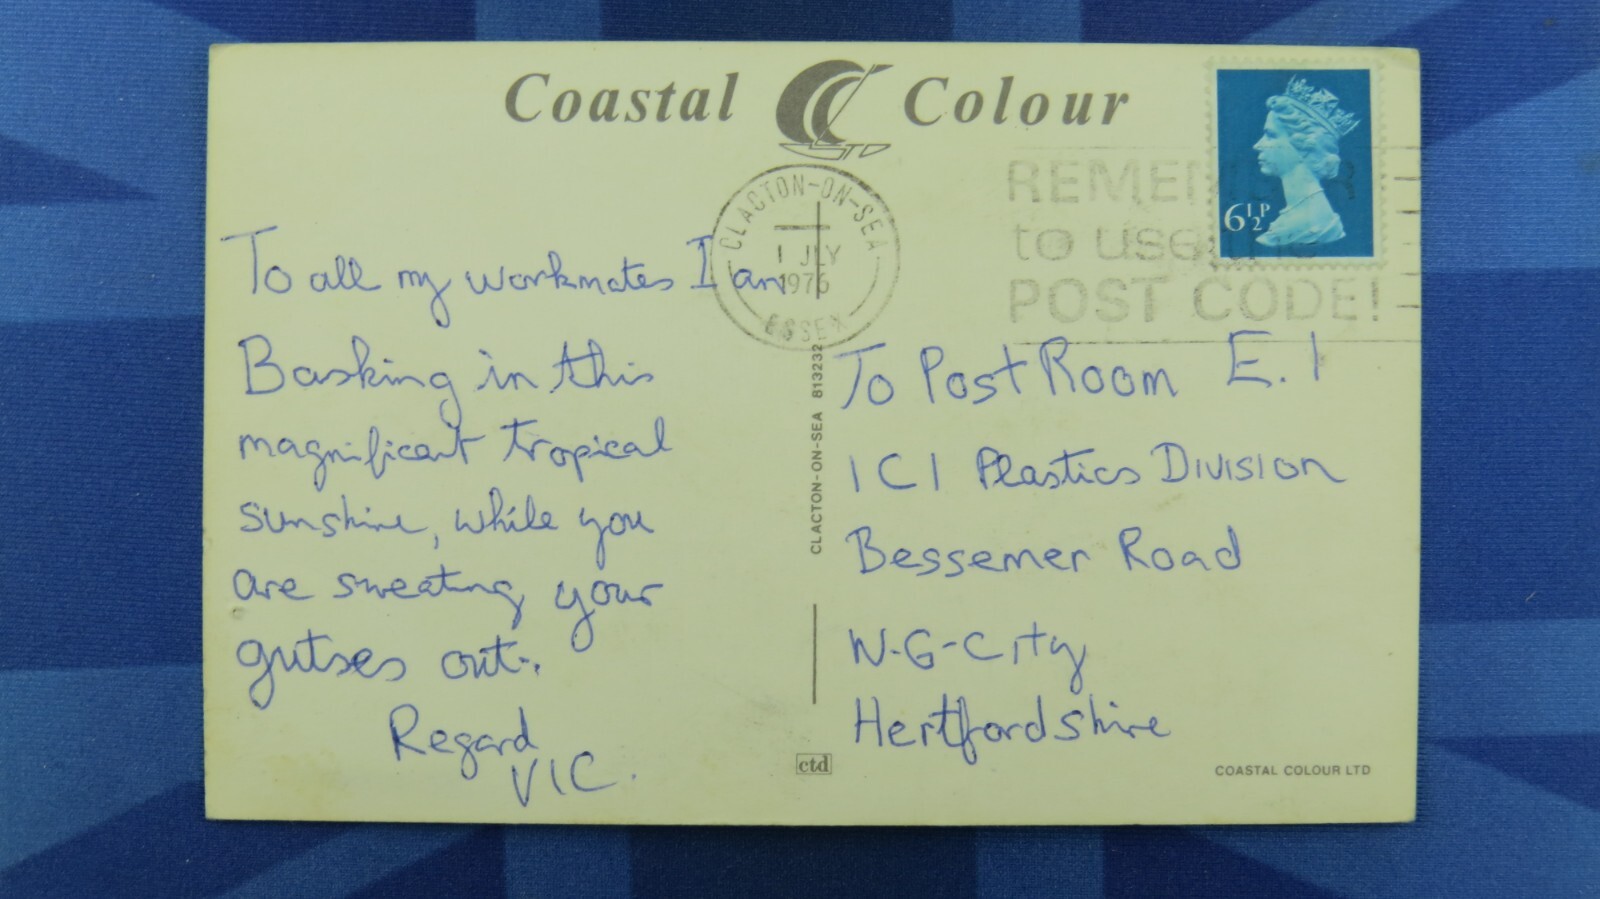 Coastal Colour
LTD
CLACTON-ON-SEA
1 JLY
1976
ESSEX
REMEMBER
to use the
POST CODE!
6½P
To all my workmates I am
Basking in this
magnificant tropical
sunshine, while you
are sweating your
gutses out.
Regard
VIC.
CLACTON-ON-SEA 813232
To Post Room E.1
ICI Plastics Division
Bessemer Road
W-G-City
Hertfordshire
ctd
COASTAL COLOUR LTD